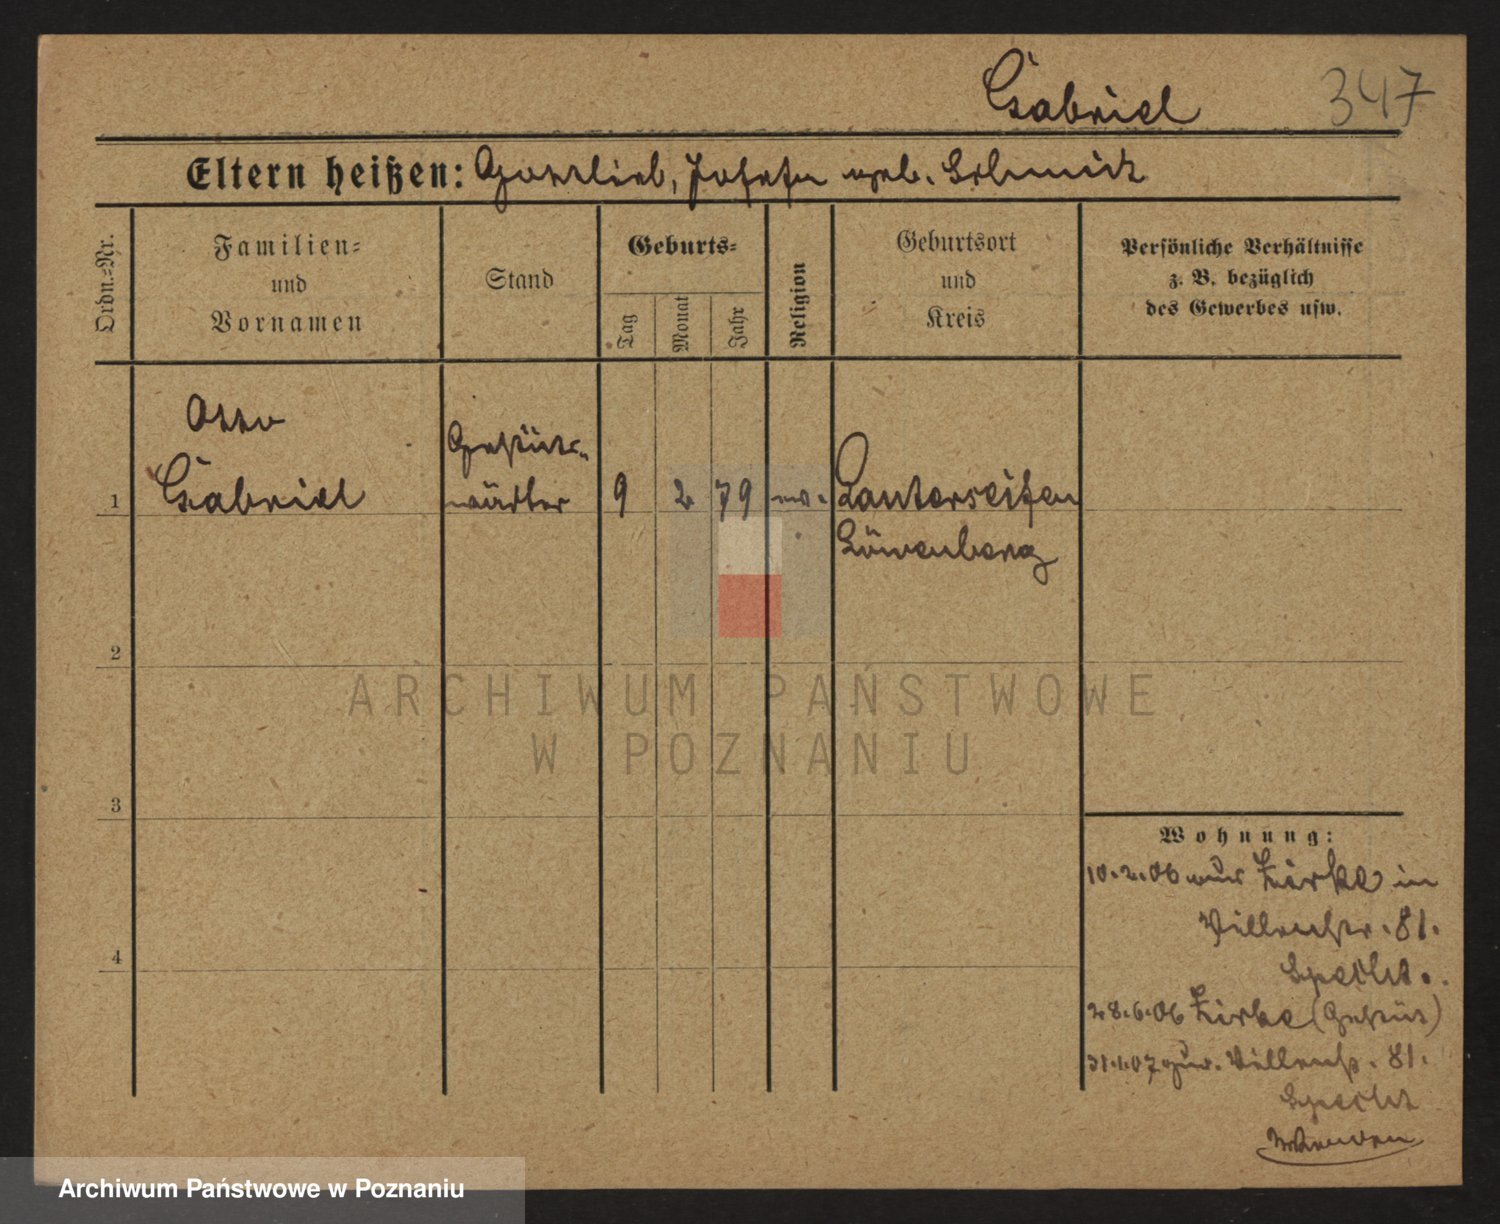 Gabriel 347
Eltern heißen: Gottlieb, Josefa geb. Schmidt
Ordn.-Nr.
Familien-
und
Vornamen
Stand
Geburts-
Tag
Monat
Jahr
Religion
Geburtsort
und
Kreis
Persönliche Verhältnisse
z. B. bezüglich
des Gewerbes usw.
Otto
Gestüts-
1 Gabriel wärter 9 2 79 ev. Lauterseifen
Löwenberg
2
3
4
Wohnung:
10.2.06 aus Zirke in
Villenstr. 81.
Specht.
28.6.06 Zirke (Gestüt)
31.1.07 zur. Villenstr. 81.
Specht
ARCHIWUM PAŃSTWOWE
W POZNANIU
Archiwum Państwowe w Poznaniu